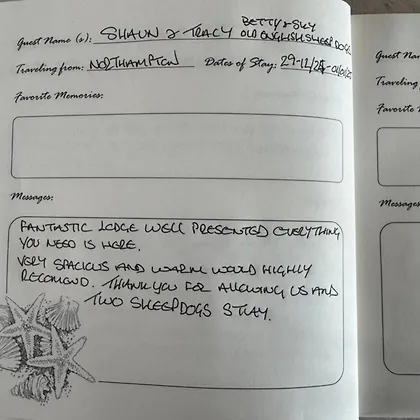 BETTY & SKY
Guest Name (s): SHAUN & TRACY OLD ENGLISH SHEEP DOGS
Traveling from: NORTHAMPTON Dates of Stay: 29-12/
Favorite Memories:
Messages:
FANTASTIC LODGE WELL PRESENTED EVERYTHING
YOU NEED IS HERE.
VERY SPACIOUS AND WARM WOULD HIGHLY
RECOMEND. THANK YOU FOR ALLOWING US AND
TWO SHEEPDOGS STAY.
Guest Nam
Traveling
Favorite
Messages: